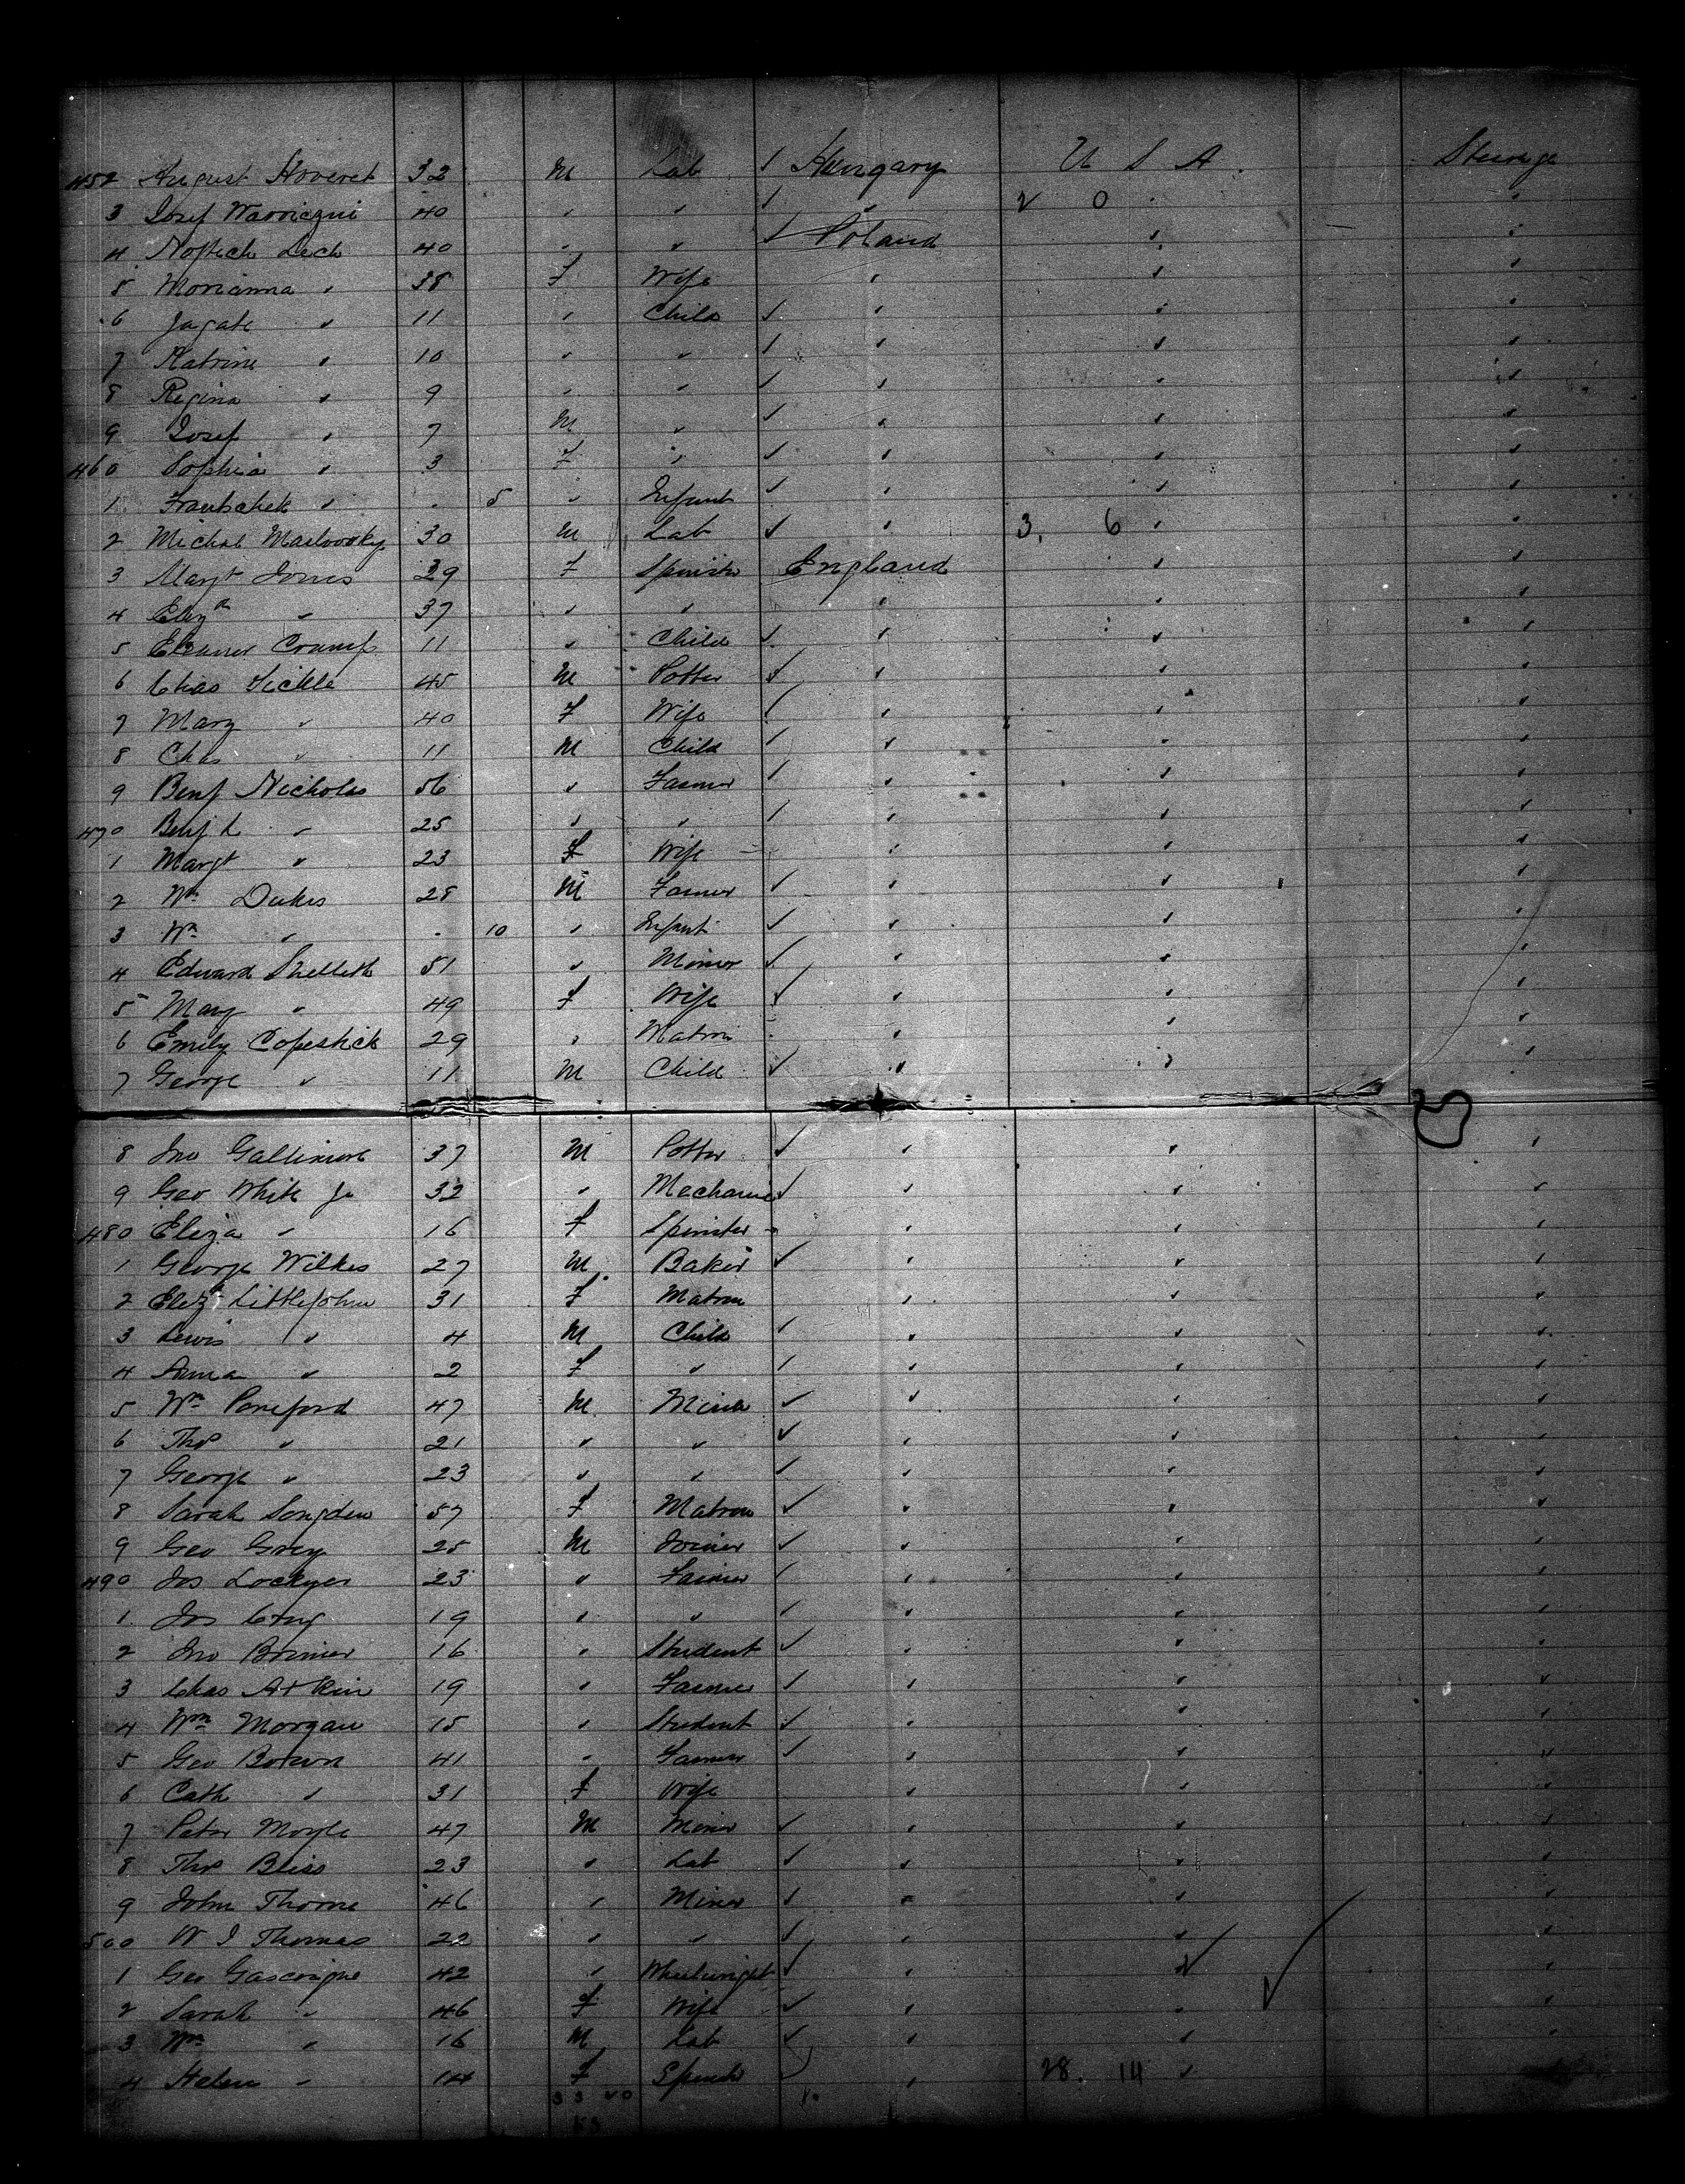 452 August Hoveret 32 M Lab / Hungary U S A Steerage
3 Josef 40 " " / " 2 0 "
4 Lech 40 " " / Poland " "
5 Morianna " 38 F Wife " " "
6 Jagate " 11 " Child / " " "
7 Katrine " 10 " " / " " "
8 Regina " 9 " " / " " "
9 Josef " 7 M " / " " "
460 Sophia " 3 F " / " " "
1 " . 5 " Infant / " " "
2 Michal 30 M Lab / " 3. 6 " "
3 Margt Jones 29 F Spinster England " "
4 Elizh " 37 " " " " "
5 Eleanor Crump 11 " Child / " " "
6 Chas Sickle 45 M Potter / " " "
7 Mary " 40 F Wife / " " "
8 Chas " 11 M Child / " " "
9 Benj Nicholas 56 " Farmer / " " "
470 Benj L " 25 " " / " " "
1 Margt " 23 F Wife - " " "
2 Wm Dukes 28 M Farmer / " " "
3 Wm " . 10 " Infant / " " "
4 Edward 51 " Miner / " " "
5 Mary " 49 F Wife / " " "
6 Emily Copestick 29 " Matron " " "
7 George " 11 M Child / " " "
8 Jno Gallimore 37 M Potter / " " "
9 Geo White Jr 32 " Mechanic / " " "
480 Eliza " 16 F Spinster - " " "
1 George Wilkes 27 M Baker / " " "
2 Elizh Littlejohn 31 F Matron " " "
3 Lewis " 4 M Child / " " "
4 Anna " 2 F " / " " "
5 Wm Poneford 47 M Miner / " " "
6 Thos " 21 " " / " " "
7 George " 23 " " / " " "
8 Sarah Songden 57 F Matron / " " "
9 Geo Grey 25 M Joiner / " " "
490 Jos Lockyer 23 " Farmer / " " "
1 Jos 19 " " / " " "
2 Jno 16 " Student / " " "
3 Chas Atkin 19 " Farmer / " " "
4 Wm Morgan 15 " Student / " " "
5 Geo Brown 41 " Farmer / " " "
6 Cath " 31 F Wife " " "
7 Peter Moyle 47 M Miner / " " "
8 Thos Bliss 23 " Lab / " " "
9 John Thorne 46 " Miner / " " "
500 W J Thomas 22 " " / " " "
1 Geo Gascoigne 42 " Wheelwright / " " "
2 Sarah " 46 F Wife / " " "
3 Wm " 16 M Lab / " " "
4 Helen " 14 F Spinster / " 28. 14 "
33 20
53